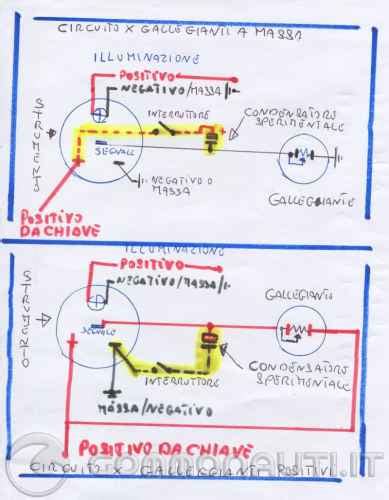 CIRCUITO X GALLEGGIANTI A MASSA
ILLUMINAZIONE
POSITIVO
NEGATIVO/MASSA/
STRUMENTO
INTERRUTTORE
CONDENSATORE
SPERIMENTALE
SEGNALE
NEGATIVO O
MASSA
GALLEGIANTE
POSITIVO
DA CHIAVE
ILLUMINAZIONE
POSITIVO
NEGATIVO/MASSA/
STRUMENTO
GALLEGIANTE
SEGNALE
CONDENSATORE
SPERIMENTALE
INTERRUTTORE
MASSA/NEGATIVO
POSITIVO DA CHIAVE
CIRCUITO X GALLEGGIANTI POSITIVI
commonauti.it